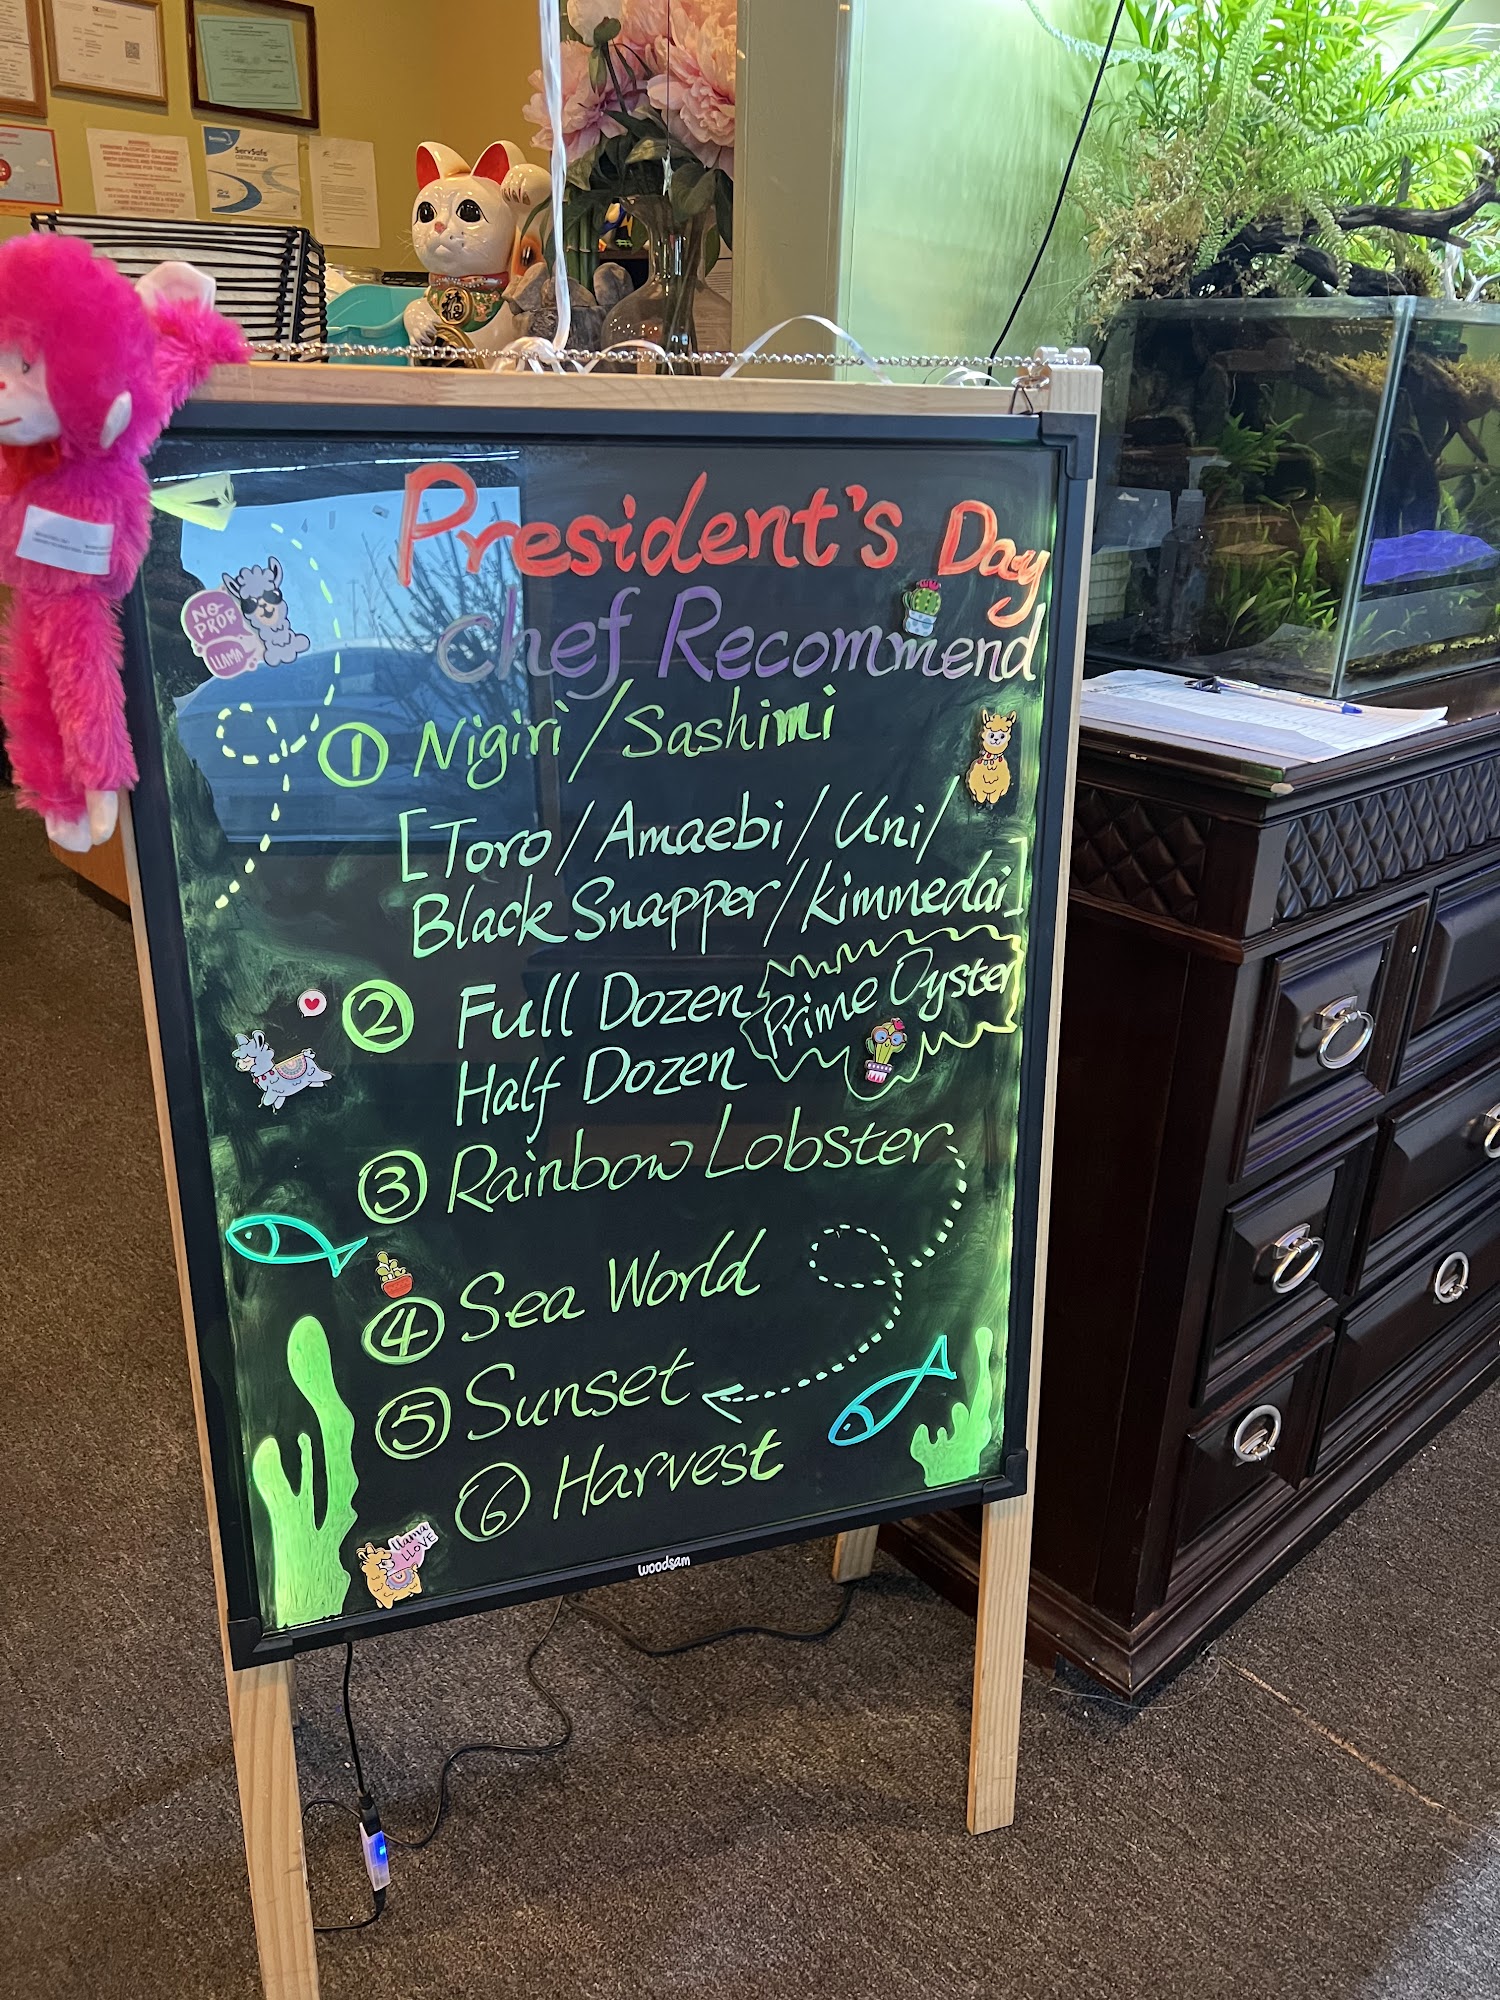 ServSafe
CERTIFICATION
President's Day
chef Recommend
NO
PROB
LLAMA
① Nigiri/Sashimi
[Toro/Amaebi/Uni/
Black Snapper/kimmedai]
② Full Dozen
Half Dozen
Prime Oyster
③ Rainbow Lobster
④ Sea World
⑤ Sunset
⑥ Harvest
llama
LLOVE
woodsam